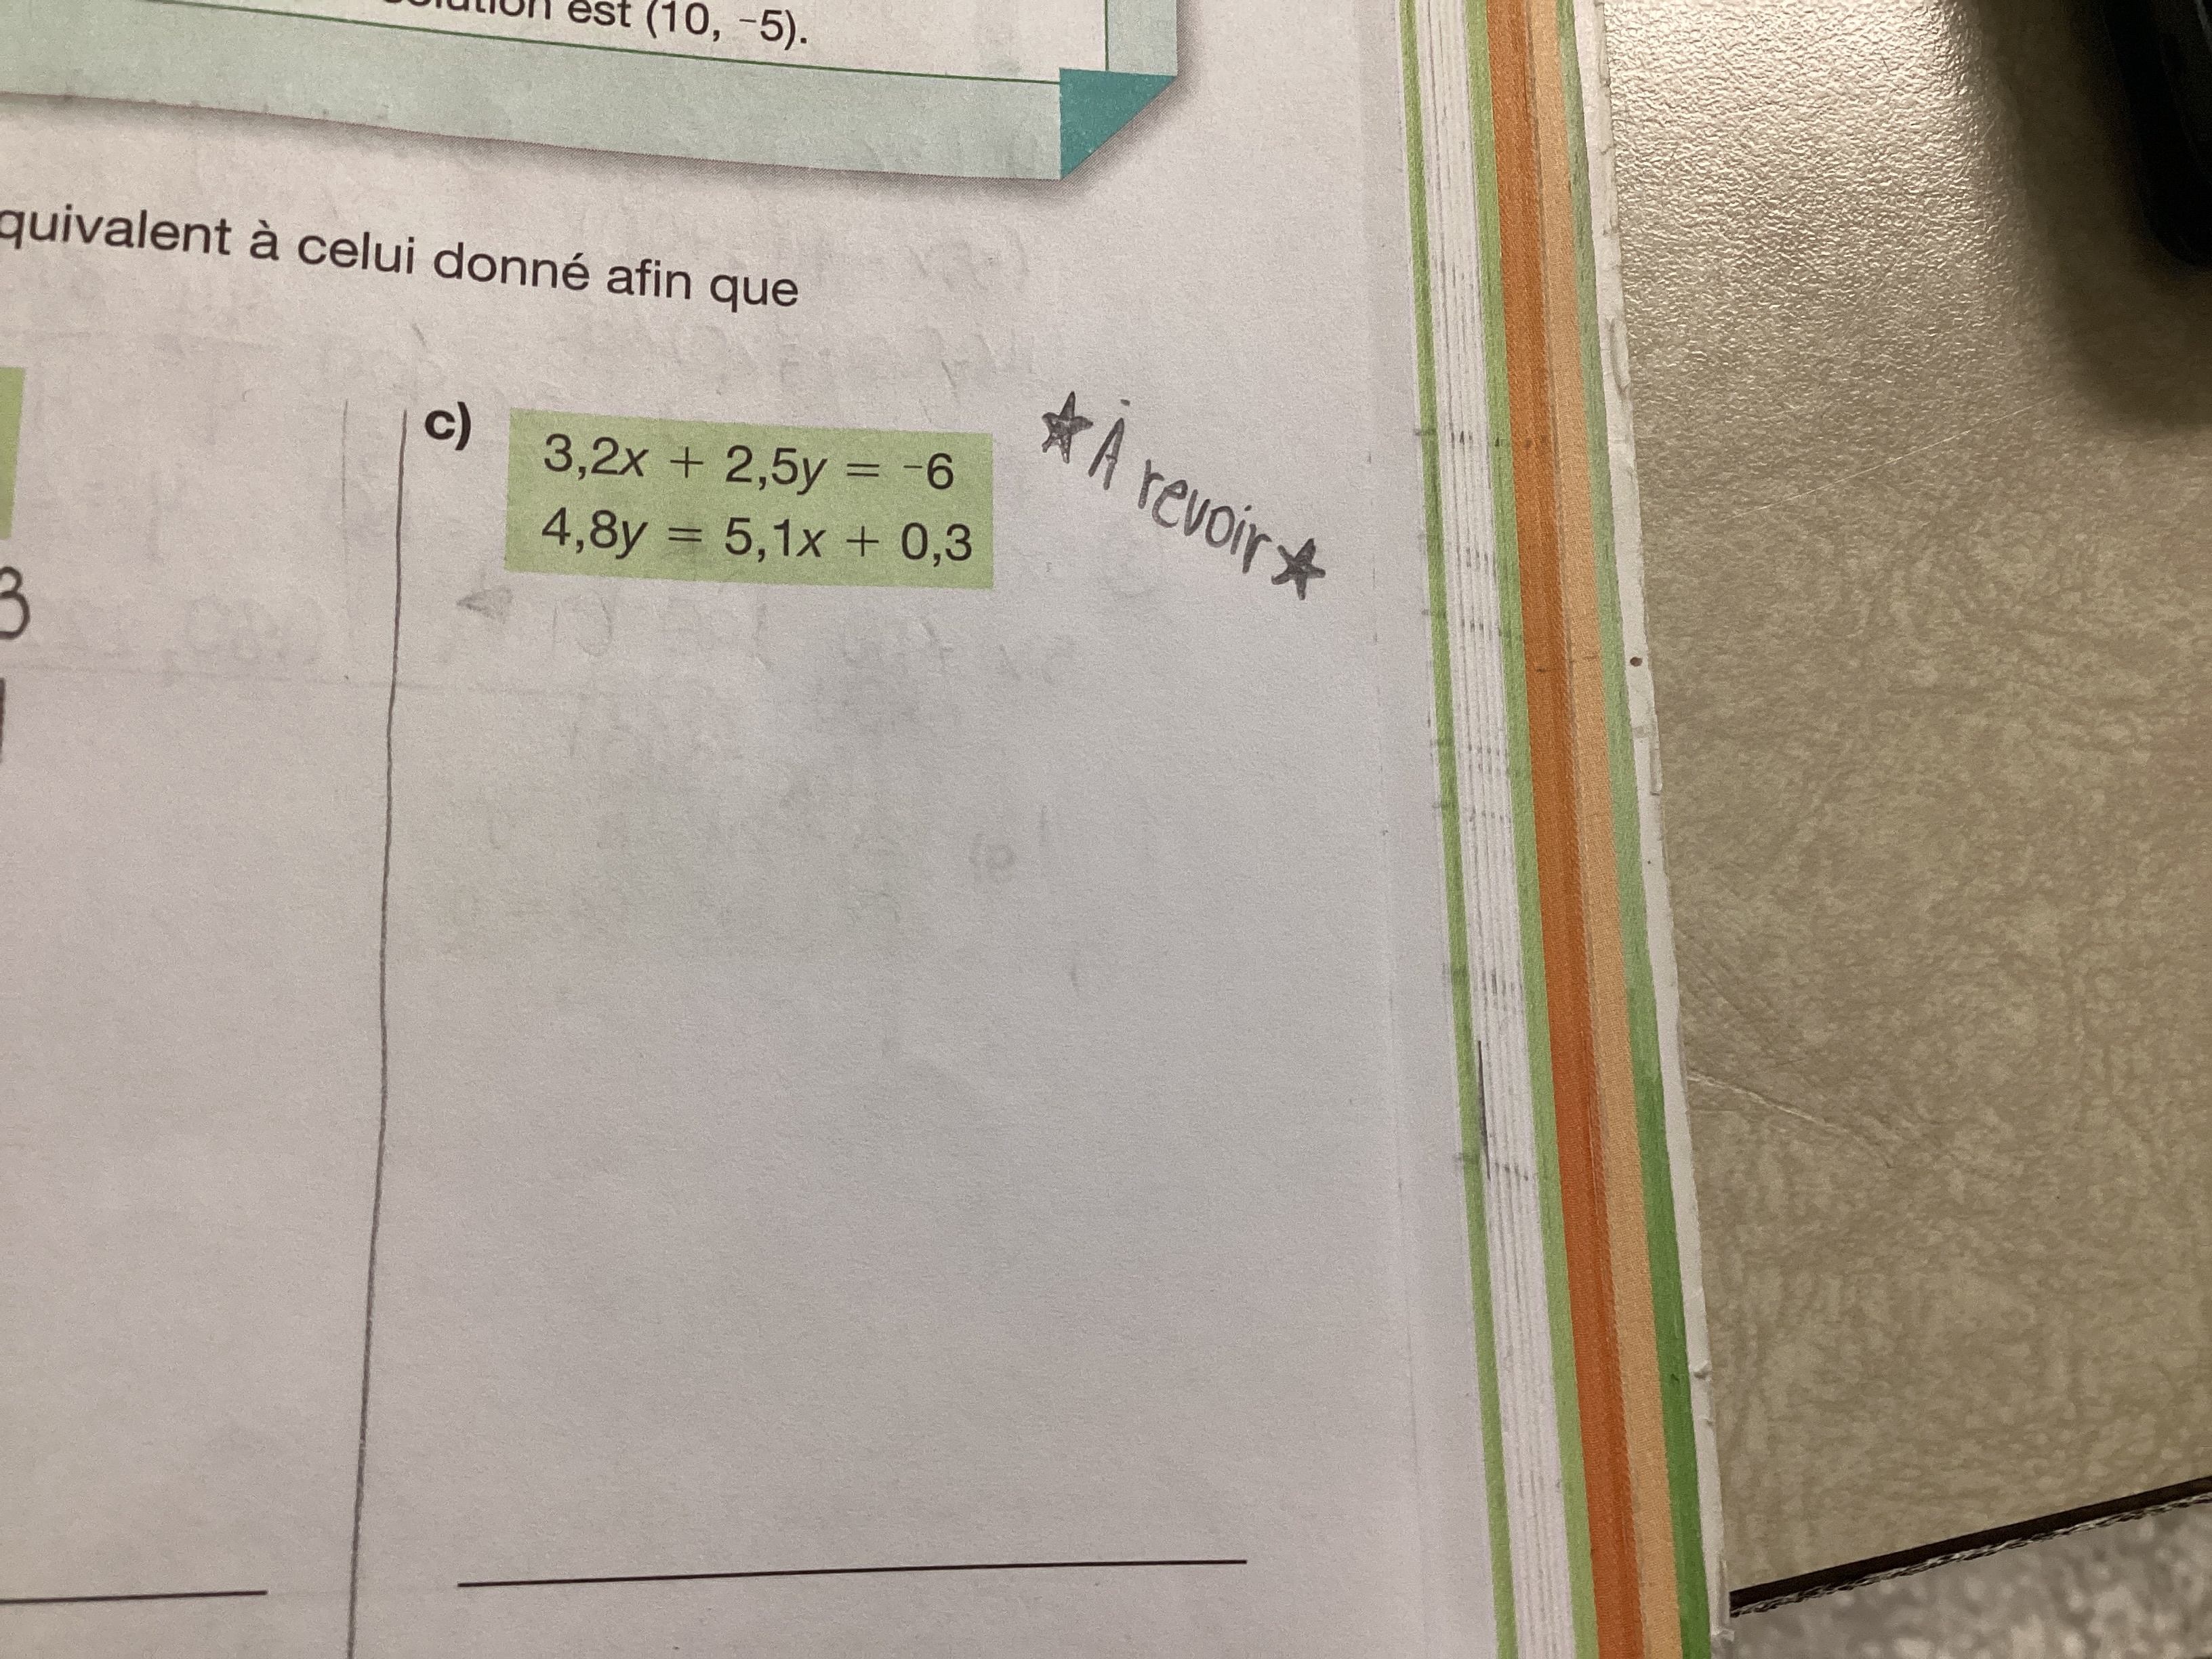 est (10, ⁻5).
à celui donné afin que
c)
3,2x + 2,5y = ⁻6
4,8y = 5,1x + 0,3
★ À revoir ★
3